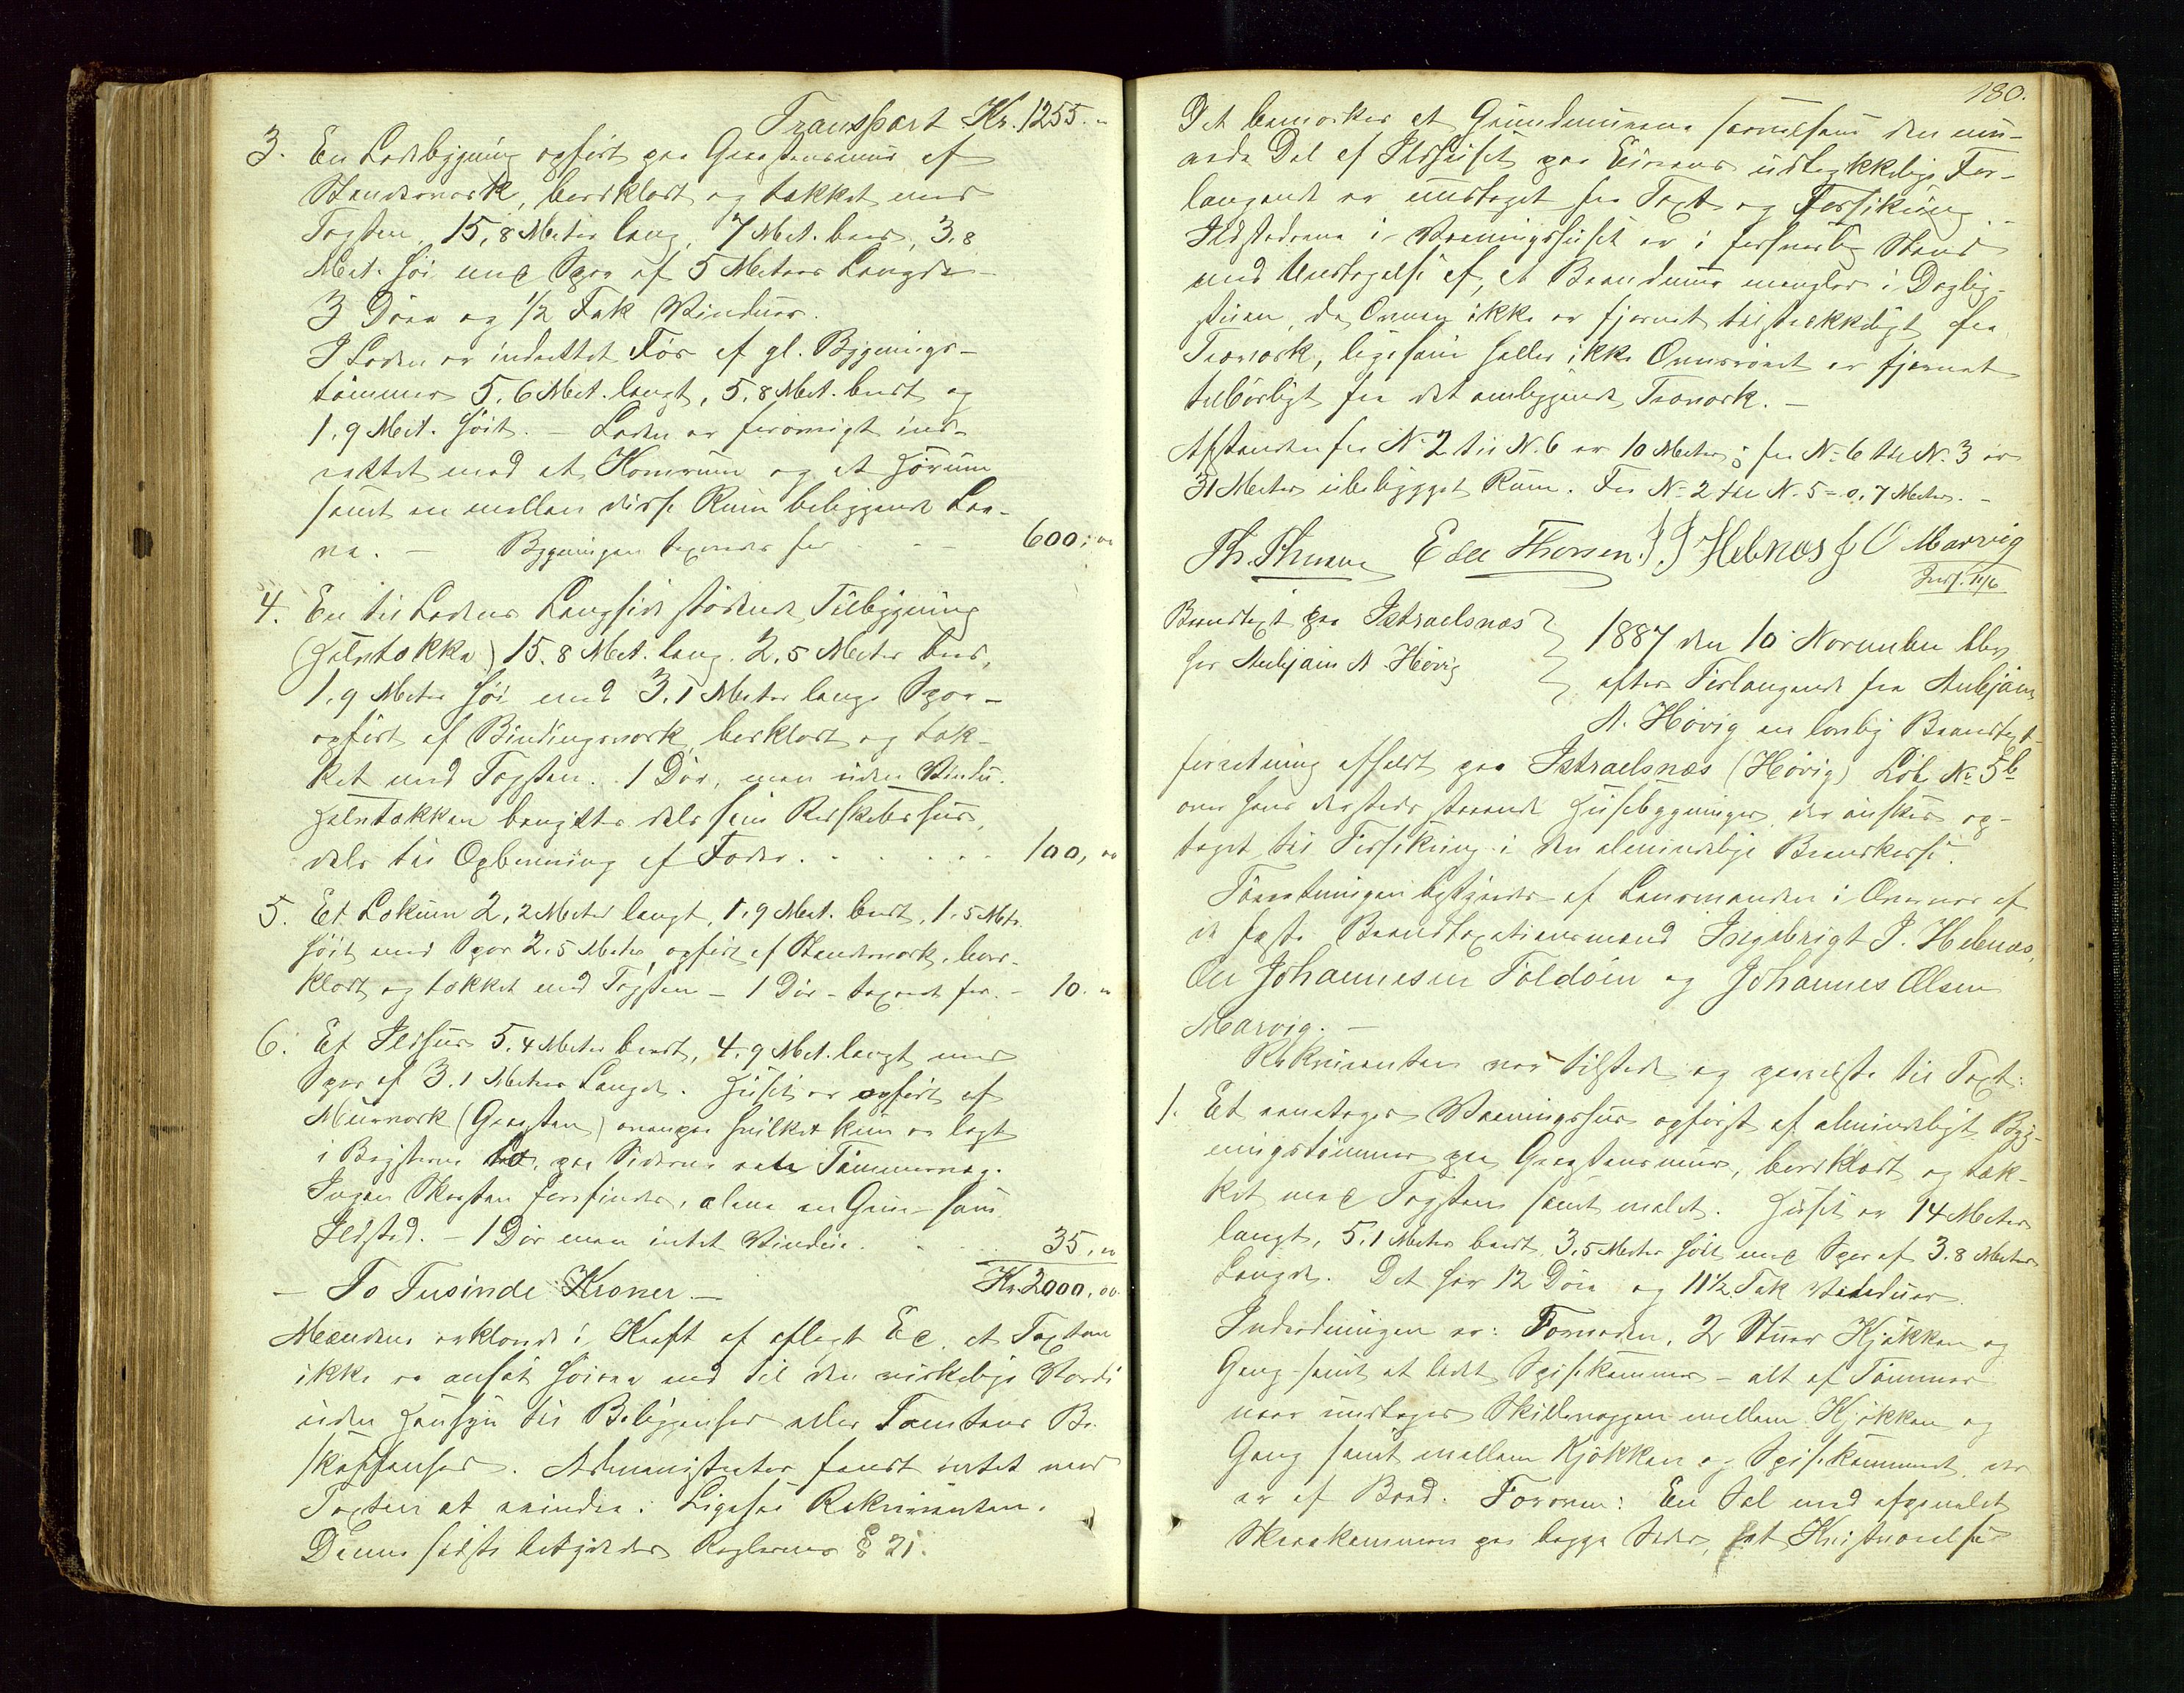 Transport Kr. 1255.„
3. En Ladebygning opført paa Graastensmuur af
Stenderværk, bordklædt og tækket med
Tagsten, 15,8 Meter lang, 7 Met. bred, 3,8
Met. höi med Spær af 5 Meters Længde
3 Döre og ½ Fak Vinduer.
I Laden er indrettet Fös af gl. Bygnings-
tömmer 5,6 Met. langt, 5,8 Met. bredt og
1,9 Met. höit. – Laden er forövrigt ind-
rettet med et Kornrum og et Hörum
samt en mellem disse Rum beliggende Laa-
ve. – Bygningen taxeredes for - - 600,00
4. En til Ladens Langside stödende Tilbygning
(Halvtække) 15.8 Met. lang. 2,5 Meter bred,
1,9 Meter höi med 3,1 Meter lange Spær –
opfört af Bindingsværk, bordklædt og tæk-
ket med Tagsten. 1 Dör, men uden Vindu.
Halvtækken benyttes dels som Redskabshus,
dels til Opbevaring af Foder. . . . . . . 100,00
5. Et Lokum 2,2 Meter langt, 1,9 Met. bredt, 1,5 Met.
höit med Spær 2.5 Meter, opfört af Stenderværk, bord-
klædt og tækket med Tagsten – 1 Dör – taxeret for. – 10.„
6. Et Ildhus 5,4 Meter bredt, 4,9 Met. langt med
Spær af 3.1 Meters Længde. Huset er opfört af
Muurværk (Graasten) ovenpaa hvilket kun er lagt
i Bagsterne paa Siderne Tömmervæg.
Ingen Skorsten forefindes, alene en Grue som
Ildsted. – 1 Dör men intet Vindue. . . . 35,„
– To Tusinde Kroner – Kr. 2000,00
Mændene erklærede i Kraft af aflagt Ed, at Taxten
ikke er ansat höiere end til den virkelige Værdi
uden Hensyn til Beliggenhed eller Tomtens Be-
skaffenhed. Administrator fandt intet ved
Taxten at erindre. Ligesaa Rekvirenten.
Denne sidste betydedes Reglernes § 21.
180.
Det bemærkes at Grundmurene saavelsom den mu-
rede Del af Ildhuset paa Eierens udtrykkelige For-
langende er undtaget fra Taxt og Forsikring. –
Ildstederne i Vaaningshuset er i forsvarlig Stand
med Undtagelse af, at Brandmuur mangler i Daglig-
stuen, da Ovnen ikke er fjernet tilstrækkeligt fra
Træværk, ligesom heller ikke Ovnsröret er fjernet
tilbörligt fra det omliggende Træværk. –
Afstanden fra No 2 til No. 6 er 10 Meter; fra No 6 til No. 3 er
31 Meter ubebygget Rum. Fra No 2 til No. 5 = 0,7 Meter. –
Th. Thuen Eder Thorsen. J J Helnæs J O Marvig
Indf. 11/6
Brandtaxt paa Istraelsnæs
for Anbjörn A. Hövig
1887 den 10 November blev
efter Forlangende fra Anbjörn
A. Hövig en lovlig Brandtaxt-
forretning afholdt paa Istraelsnæs (Hövig) Löb. No 5b
over hans dersteds staaende Husebygninger, der önskes op-
taget til Forsikring i den almindelige Brandkasse.
Forretningen bestyredes af Lensmanden i Overvær af
de faste Brandtaxationsmænd Ingebrigt J. Helnæs,
Ole Johannesen Foldöen og Johannes Olsen
Marvig. –
Rekvirenten var tilstede og paaviste til Taxt:
1. Et eenetages Vaaningshus opfört af almindeligt Byg-
ningstömmer paa Graastensmuur, bordklædt og tæk-
ket med Tagsten samt malet. Huset er 14 Meter
langt, 5,1 Meter bredt, 3,5 Meter höit med Spær af 3.8 Meters
Længde. Det har 12 Döre og 11½ Fak Vinduer.
Inddelingen er: Forneden, 2 Stuer Kjökken og
Gang samt et lidet Spisekammer – alt af Tömmer
naar undtages Skillevæggen mellem Kjökken og
Gang samt mellem Kjökken og Spisekammeret, der
er af Bord. Foroven: En Sal med afpanelet
Skraakammere paa begge Sider, et Kvistværelse